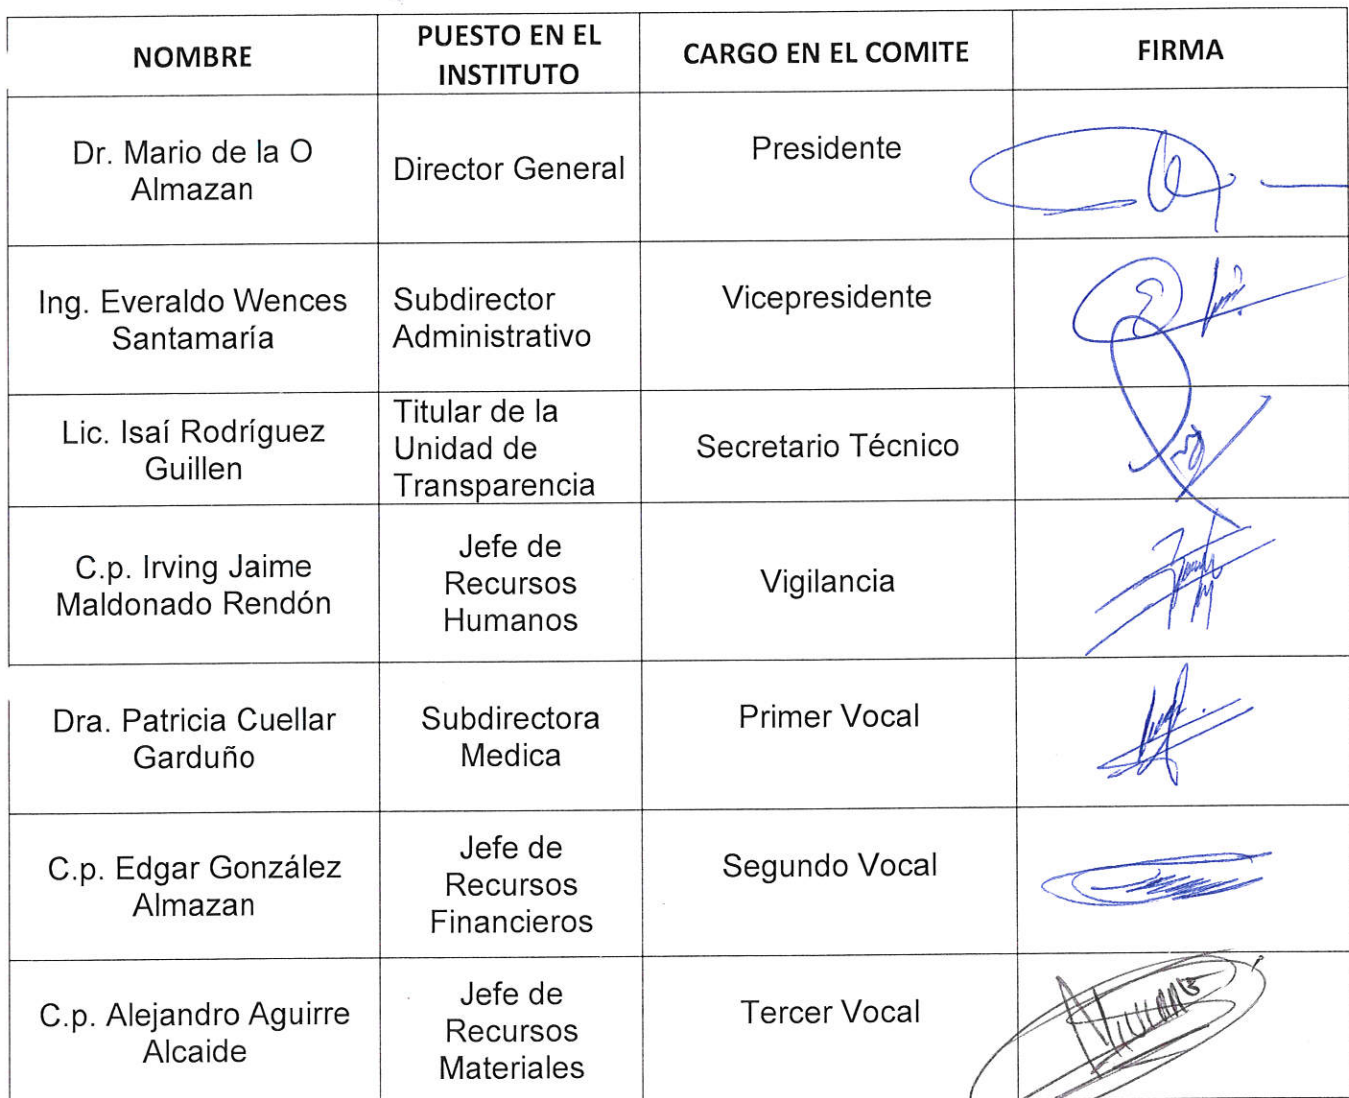 NOMBRE
PUESTO EN EL
INSTITUTO
CARGO EN EL COMITE
FIRMA
Dr. Mario de la O
Almazan
Director General
Presidente
Ing. Everaldo Wences
Santamaría
Subdirector
Administrativo
Vicepresidente
Lic. Isaí Rodríguez
Guillen
Titular de la
Unidad de
Transparencia
Secretario Técnico
C.p. Irving Jaime
Maldonado Rendón
Jefe de
Recursos
Humanos
Vigilancia
Dra. Patricia Cuellar
Garduño
Subdirectora
Medica
Primer Vocal
C.p. Edgar González
Almazan
Jefe de
Recursos
Financieros
Segundo Vocal
C.p. Alejandro Aguirre
Alcaide
Jefe de
Recursos
Materiales
Tercer Vocal